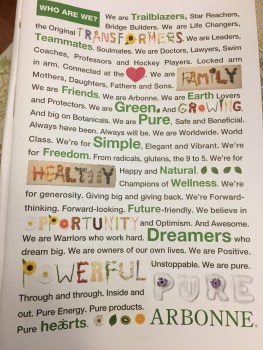 WHO ARE WE?
We are Trailblazers, Star Reachers,
Bridge Builders. We are Life Changers,
the Original TRANSFORMERS. We are Leaders,
Teammates. Soulmates. We are Doctors, Lawyers, Swim
Coaches, Professors and Hockey Players. Locked arm
in arm. Connected at the ❤. We are FAMILY
Mothers, Daughters, Fathers and Sons.
We are Friends. We are Arbonne. We are Earth Lovers
and Protectors. We are Green, And GROWING.
And big on Botanicals. We are Pure, Safe and Beneficial.
Always have been. Always will be. We are Worldwide. World
Class. We're for Simple, Elegant and Vibrant. We're
for Freedom. From radicals, glutens, the 9 to 5. We're for
HEALTHY Happy and Natural.
Champions of Wellness. We're
for generosity. Giving big and giving back. We're Forward-
thinking. Forward-looking. Future-friendly. We believe in
OPPORTUNITY and Optimism. And Awesome.
We are Warriors who work hard. Dreamers who
dream big. We are owners of our own lives. We are Positive.
POWERFUL Unstoppable. We are pure.
Through and through. Inside and
out. Pure Energy. Pure products.
Pure hearts.
PURE
ARBONNE